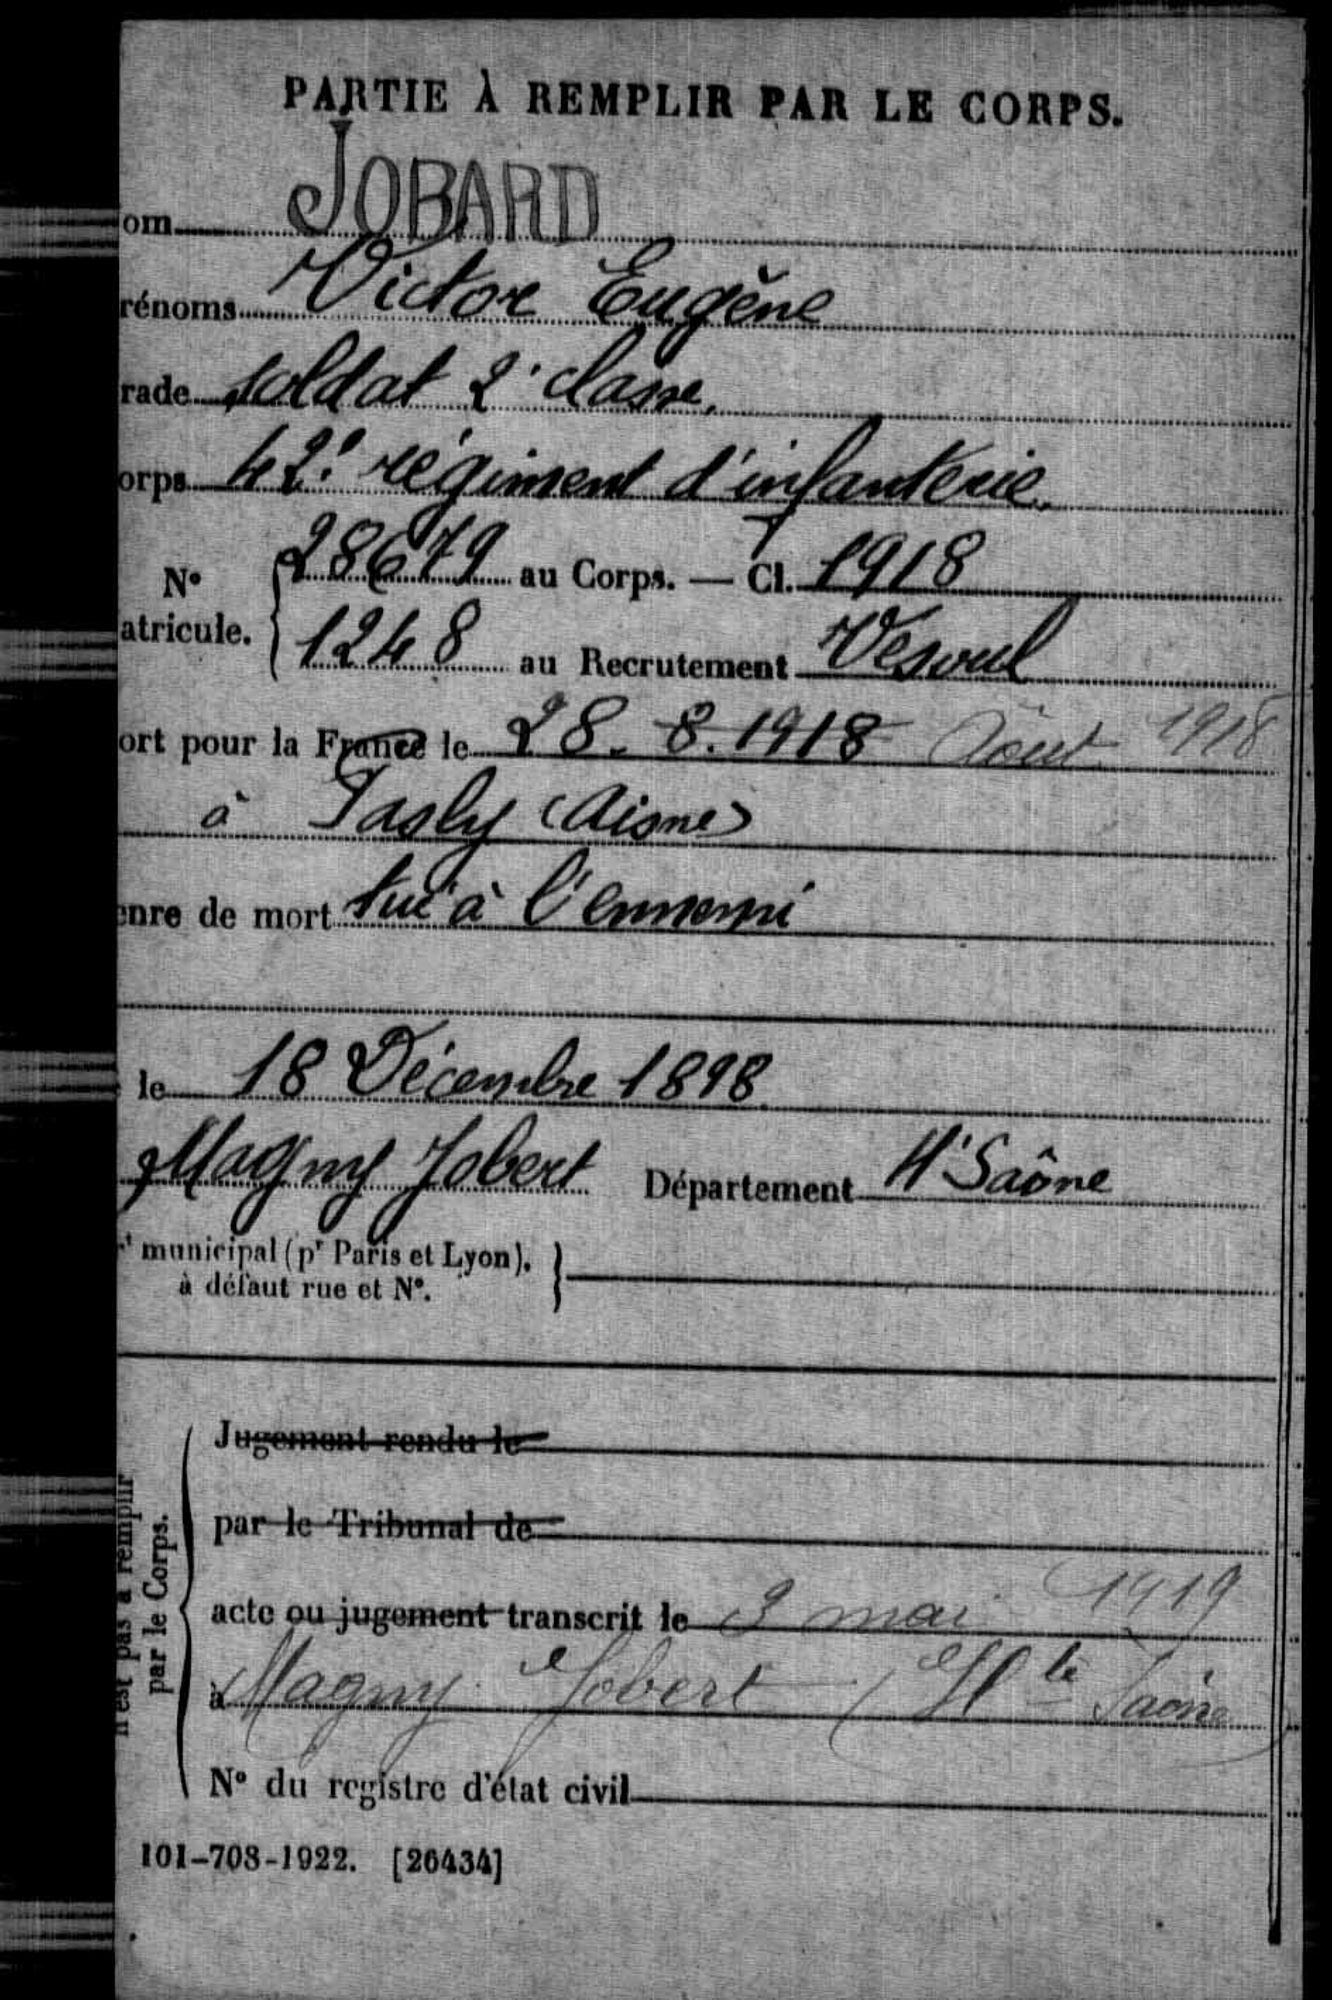 PARTIE À REMPLIR PAR LE CORPS.
om JOBARD
rénoms Victor Eugène
rade soldat 2e classe.
orps 42e régiment d'infanterie.
N° 28679 au Corps. — Cl. 1918
atricule. 1248 au Recrutement Vesoul
ort pour la France le 28. 8. 1918 Août 1918
à Pasly (Aisne)
enre de mort tué à l'ennemi
le 18 Décembre 1898
Magny Jobert Département Hte Saône
t municipal (pr Paris et Lyon),
à défaut rue et N°.
Jugement rendu le
par le Tribunal de
acte ou jugement transcrit le 3 mai 1919
à Magny Jobert (Hte Saône)
N° du registre d'état civil
n'est pas à remplir
par le Corps.
101-708-1922. [26434]